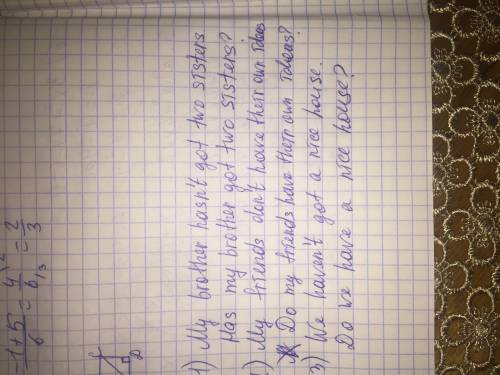 -1+5/6 = 4\2/6/3 = 2/3
D
1) My brother hasn't got two sisters
Has my brother got two sisters?
2) My friends don't have their own
Do my friends have their own
3) We haven't got a nice house.
Do we have a nice house?